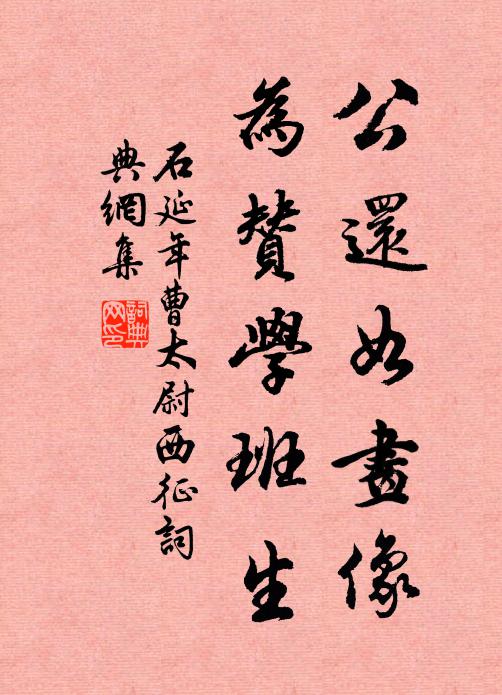 公還如畫像
為贊學班生
石延年曹太尉西征詞
典網集
詞典網印